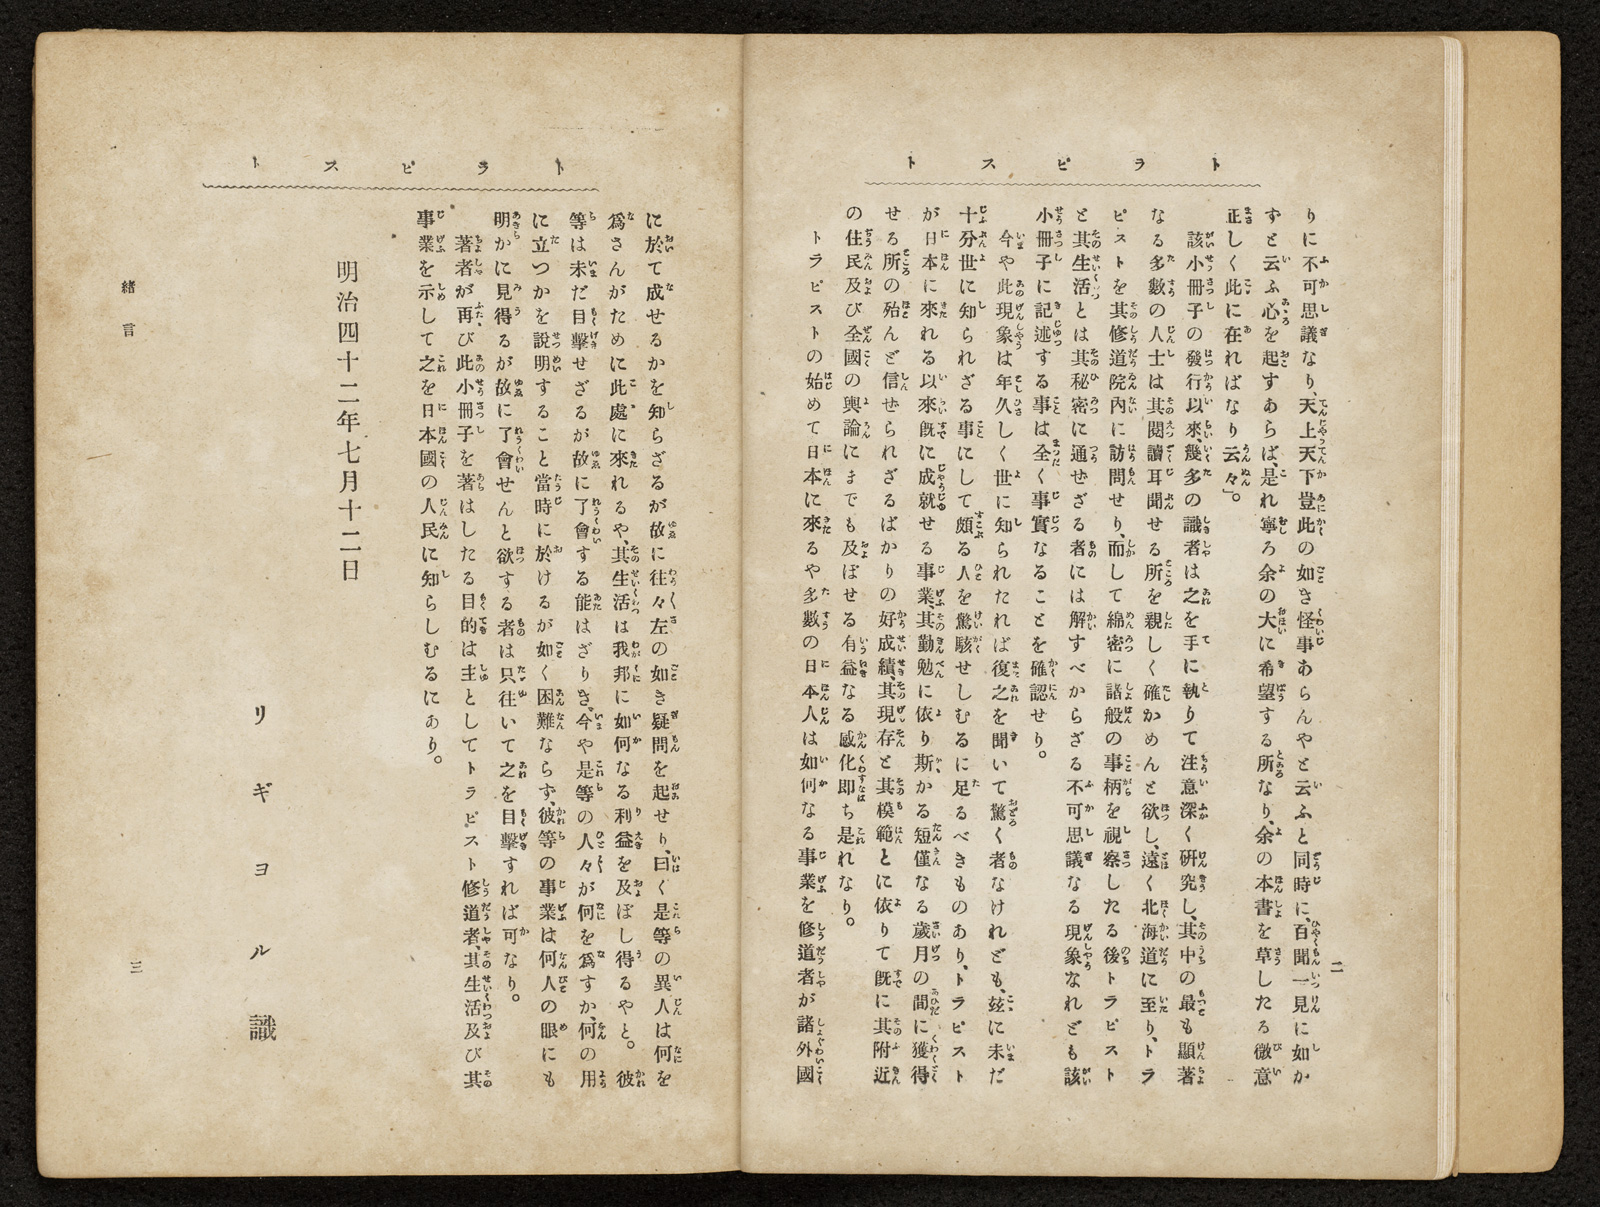 トラピスト
二
りに不可思議なり、天上天下豈此の如き怪事あらんやと云ふと同時に、百聞一見に如か
ずと云ふ心を起すあらば、是れ寧ろ余の大に希望する所なり、余の本書を草したる微意
正しく此に在ればなり云々」。
該小冊子の發行以來、幾多の識者は之を手に執りて注意深く研究し、其中の最も顯著
なる多數の人士は其閱讀耳聞せる所を親しく確かめんと欲し、遠く北海道に至り、トラ
ピストを其修道院內に訪問せり、而して綿密に諸般の事柄を視察したる後トラピスト
と其生活とは其秘密に通せざる者には解すべからざる不可思議なる現象なれども該
小冊子に記述する事は全く事實なることを確認せり。
今や此現象は年久しく世に知られたれば復之を聞いて驚く者なけれども、玆に未だ
十分世に知られざる事にして頗る人を驚駭せしむるに足るべきものあり、トラピスト
が日本に來れる以來既に成就せる事業、其勤勉に依り斯かる短僅なる歲月の間に獲得
せる所の殆んど信ぜられざるばかりの好成績、其現存と其模範とに依りて既に其附近
の住民及び全國の輿論にまでも及ぼせる有益なる感化卽ち是れなり。
トラピストの始めて日本に來るや多數の日本人は如何なる事業を修道者が諸外國
トラピスト
に於て成せるかを知らざるが故に往々左の如き疑問を起せり、曰く是等の異人は何を
爲さんがために此處に來れるや、其生活は我邦に如何なる利益を及ぼし得るやと。彼
等は未だ目擊せざるが故に了會する能はざりき、今や是等の人々が何を爲すか、何の用
に立つかを說明すること當時に於けるが如く困難ならず、彼等の事業は何人の眼にも
明かに見得るが故に了會せんと欲する者は只往いて之を目擊すれば可なり。
著者が再び此小冊子を著はしたる目的は主としてトラピスト修道者、其生活及び其
事業を示して之を日本國の人民に知らしむるにあり。
明治四十二年七月十二日
リギヨル識
緖言
三